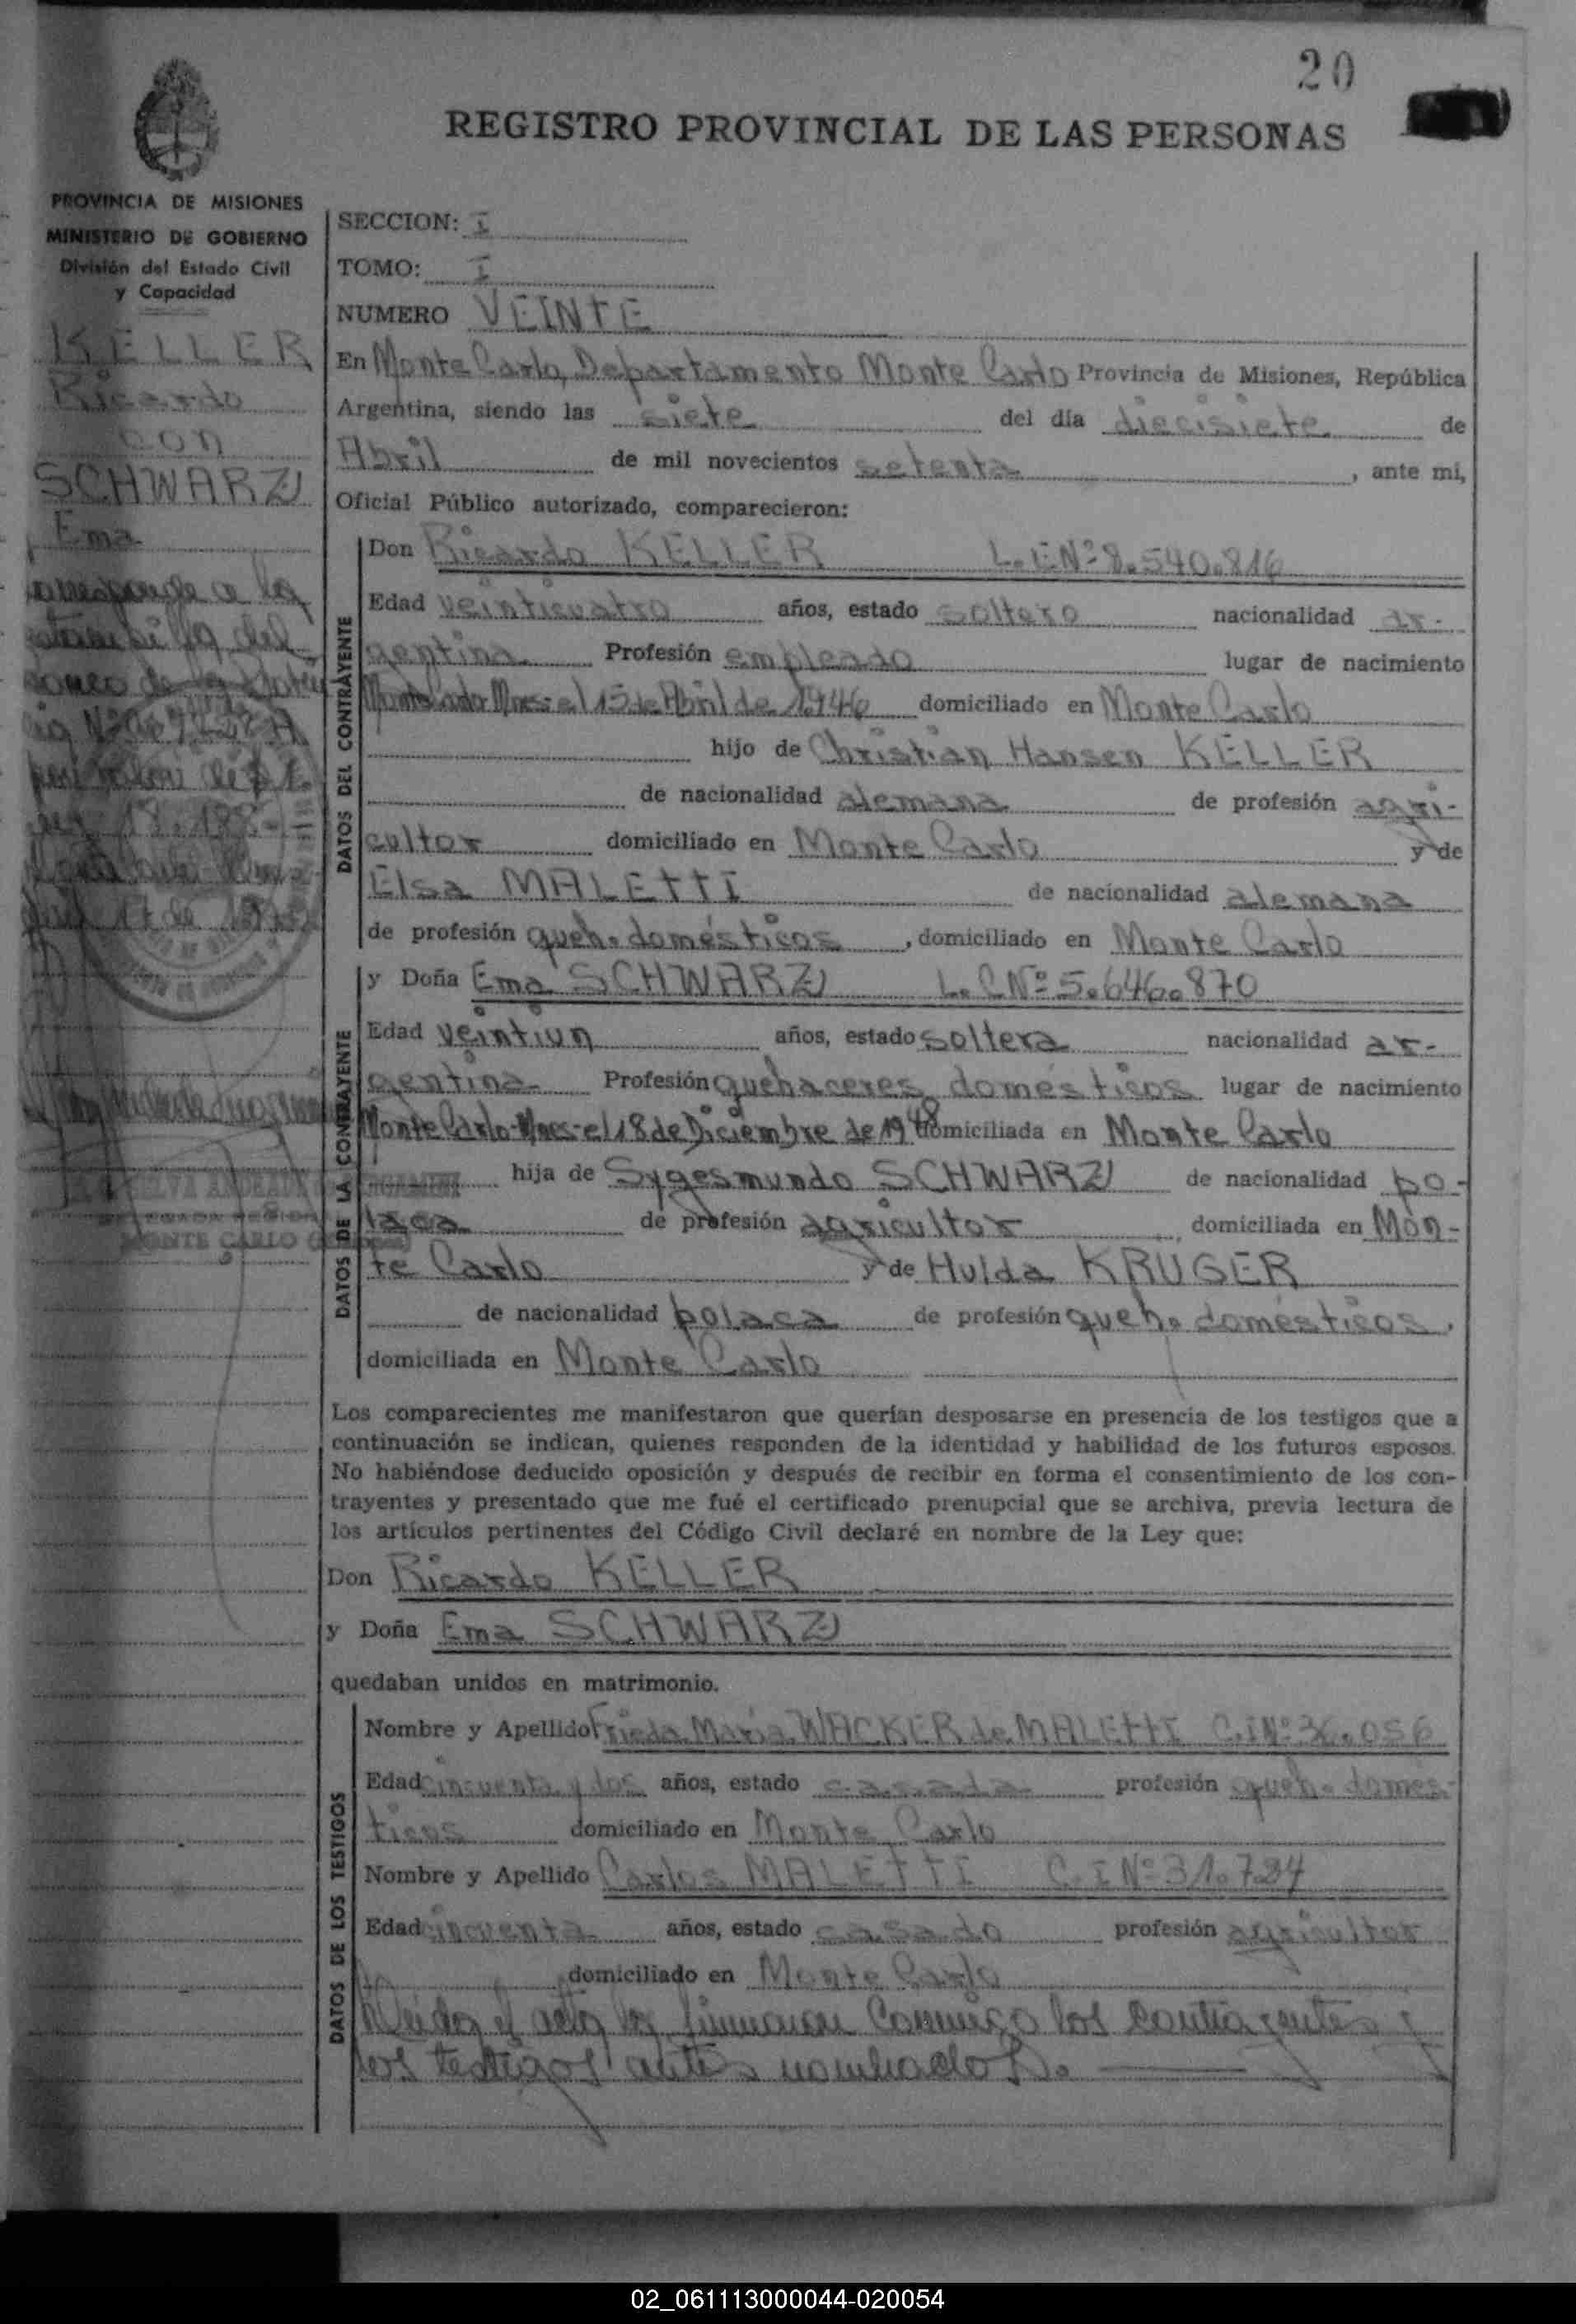 20
REGISTRO PROVINCIAL DE LAS PERSONAS
PROVINCIA DE MISIONES
MINISTERIO DE GOBIERNO
División del Estado Civil
y Capacidad
KELLER
Ricardo
con
SCHWARZ
Ema
SECCION: I
TOMO: I
NUMERO VEINTE
En Monte Carlo, Departamento Monte Carlo Provincia de Misiones, República
Argentina, siendo las siete del día diecisiete de
Abril de mil novecientos setenta, ante mí,
Oficial Público autorizado, comparecieron:
DATOS DEL CONTRAYENTE
Don Ricardo KELLER L.E Nº 8.540.816
Edad veinticuatro años, estado soltero nacionalidad ar-
gentina Profesión empleado lugar de nacimiento
el 15 de Abril de 1946 domiciliado en Monte Carlo
hijo de Christian Hansen KELLER
de nacionalidad alemana de profesión agri-
cultor domiciliado en Monte Carlo y de
Elsa MALETTI de nacionalidad alemana
de profesión queh. domésticos, domiciliado en Monte Carlo
DATOS DE LA CONTRAYENTE
y Doña Ema SCHWARZ L.C Nº 5.646.870
Edad veintiun años, estado soltera nacionalidad ar-
gentina Profesión quehaceres domésticos lugar de nacimiento
Monte Carlo-Mnes-el 18 de Diciembre de 1948 domiciliada en Monte Carlo
hija de Sygesmundo SCHWARZ de nacionalidad po-
laca de profesión agricultor, domiciliada en Mon-
te Carlo y de Hulda KRUGER
de nacionalidad polaca de profesión queh. domésticos,
domiciliada en Monte Carlo
Los comparecientes me manifestaron que querían desposarse en presencia de los testigos que a
continuación se indican, quienes responden de la identidad y habilidad de los futuros esposos.
No habiéndose deducido oposición y después de recibir en forma el consentimiento de los con-
trayentes y presentado que me fué el certificado prenupcial que se archiva, previa lectura de
los artículos pertinentes del Código Civil declaré en nombre de la Ley que:
Don Ricardo KELLER
y Doña Ema SCHWARZ
quedaban unidos en matrimonio.
DATOS DE LOS TESTIGOS
Nombre y Apellido Frieda Maria WACKER de MALETTI C.I Nº
Edad cincuenta y dos años, estado casada profesión queh. domés-
ticos domiciliado en Monte Carlo
Nombre y Apellido Carlos MALETTI C.I Nº 31.734
Edad cincuenta años, estado casado profesión agricultor
domiciliado en Monte Carlo
Leida el acta la firmaron conmigo los contrayentes y
los testigos antes nombrados.
02_061113000044-020054